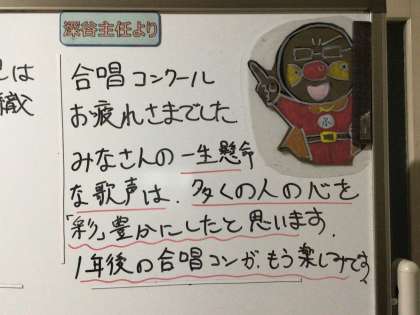 深谷主任より
見は
職
合唱コンクール
お疲れさまでした
みなさんの一生懸命
な歌声は、多くの人の心を
「彩」豊かにしたと思います。
1年後の合唱コンが、もう楽しみです。
ふ